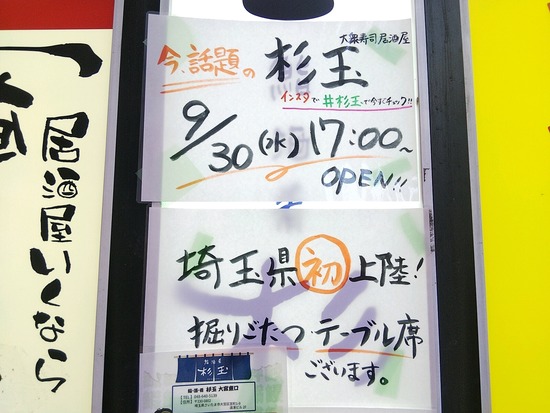 大衆寿司居酒屋
今、話題の 杉玉
インスタで #杉玉で今すぐチェック!!
9/30(水)17:00~
OPEN!!
埼玉県初上陸!
掘りごたつ・テーブル席
ございます。
杉玉
杉玉 大宮東口
居酒屋いくなら